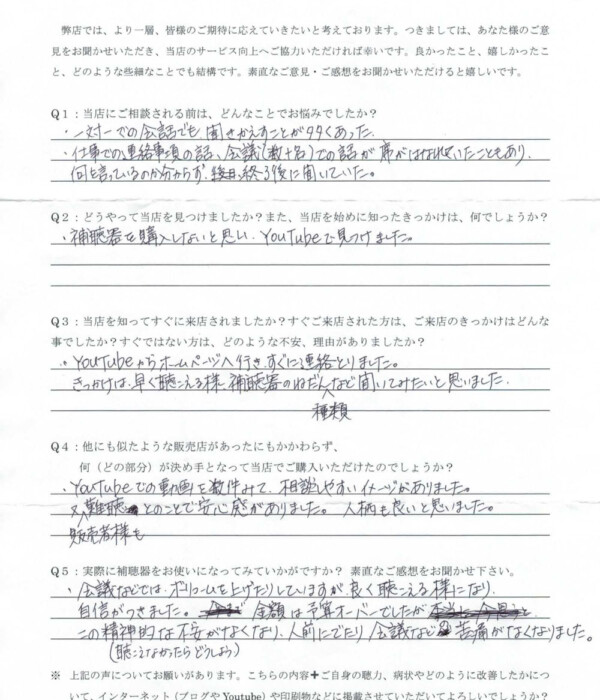 弊店では、より一層、皆様のご期待に応えていきたいと考えております。つきましては、あなた様のご意
見をお聞かせいただき、当店のサービス向上へご協力いただければ幸いです。良かったこと、嬉しかったこ
と、どのような些細なことでも結構です。素直なご意見・ご感想をお聞かせいただけると嬉しいです。
Q1:当店にご相談される前は、どんなことでお悩みでしたか?
・一対一での会話でも聞きかえすことが多々あった.
・仕事での連絡事項の話、会議(数十名)での話が席がはなれていたこともあり、
何を言っているのか分からず、後日、終了後に聞いていた。
Q2:どうやって当店を見つけましたか?また、当店を始めに知ったきっかけは、何でしょうか?
・補聴器を購入しないと思い、YouTubeで見つけました。
Q3:当店を知ってすぐに来店されましたか?すぐご来店された方は、ご来店のきっかけはどんな
事でしたか?すぐではない方は、どのような不安、理由がありましたか?
・YouTubeからホームページへ行き、すぐに連絡とりました。
きっかけは、早く聴こえる様、補聴器のねだんなど聞いてみたいと思いました.
種類
Q4:他にも似たような販売店があったにもかかわらず、
何(どの部分)が決め手となって当店でご購入いただけたのでしょうか?
・YouTubeでの動画を数件みて、相談しやすいイメージがありました。
又、難聴とのことで安心感がありました。人柄も良いと思いました。
販売者様も
Q5:実際に補聴器をお使いになってみていかがですか? 素直なご感想をお聞かせ下さい。
・会議などでは、ボリュームを上げたりしていますが、良く聴こえる様になり、
自信がつきました。金額は予算オーバーでしたが
この精神的な不安がなくなり、人前にでたり、会議など苦痛がなくなりました。
(聴こえなかったらどうしよう)
※ 上記の声についてお願いがあります。こちらの内容+ご自身の聴力、病状やどのように改善したかにつ
いて、インターネット(ブログやYoutube)や印刷物などに掲載させていただいてよろしいでしょうか?